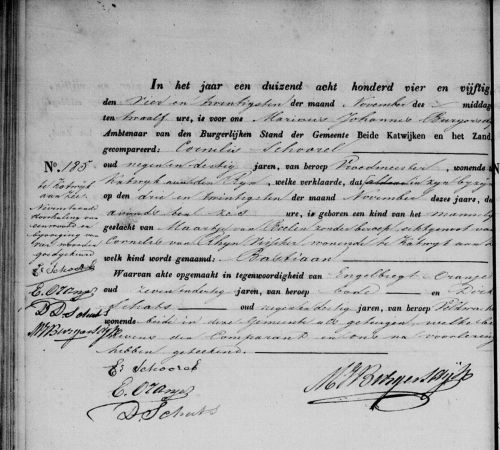 In het jaar een duizend acht honderd vier en vijftig
den vier en twintigsten der maand November des middags
ten twaalf ure, is voor ons Marinus Johannes
Ambtenaar van den Burgerlijken Stand der Gemeente Beide Katwijken en het Zand
gecompareerd: Cornelis Schoorel
oud negen en dertig jaren, van beroep Vroedmeester, wonende
Katwyk aan den Ryn, welke verklaarde, dat in zyn byzyn
op den drie en twintigsten der maand November dezes jaars, des
avonds ten zes ure, is geboren een kind van het mannelyk
geslacht van Maartje van Beelen zonder beroep echtgenoot van
Cornelis van Rhyn Visscher wonende te Katwyk aan
welk kind wordt genaamd: Bastiaan
Waarvan akte opgemaakt in tegenwoordigheid van Engelbregt Oranje
oud zeven en dertig jaren, van beroep bode en Dirk
Schuts oud negen en dertig jaren, van beroep
wonende beide in deze Gemeente als getuigen, welke
nevens den Comparant en ons na voorlezing
hebben geteekend.
No. 195
te Katwyk
aan Zee
C. Schoorel
E. Oranje
D. Schuts
C. Schoorel
E. Oranje
D. Schuts